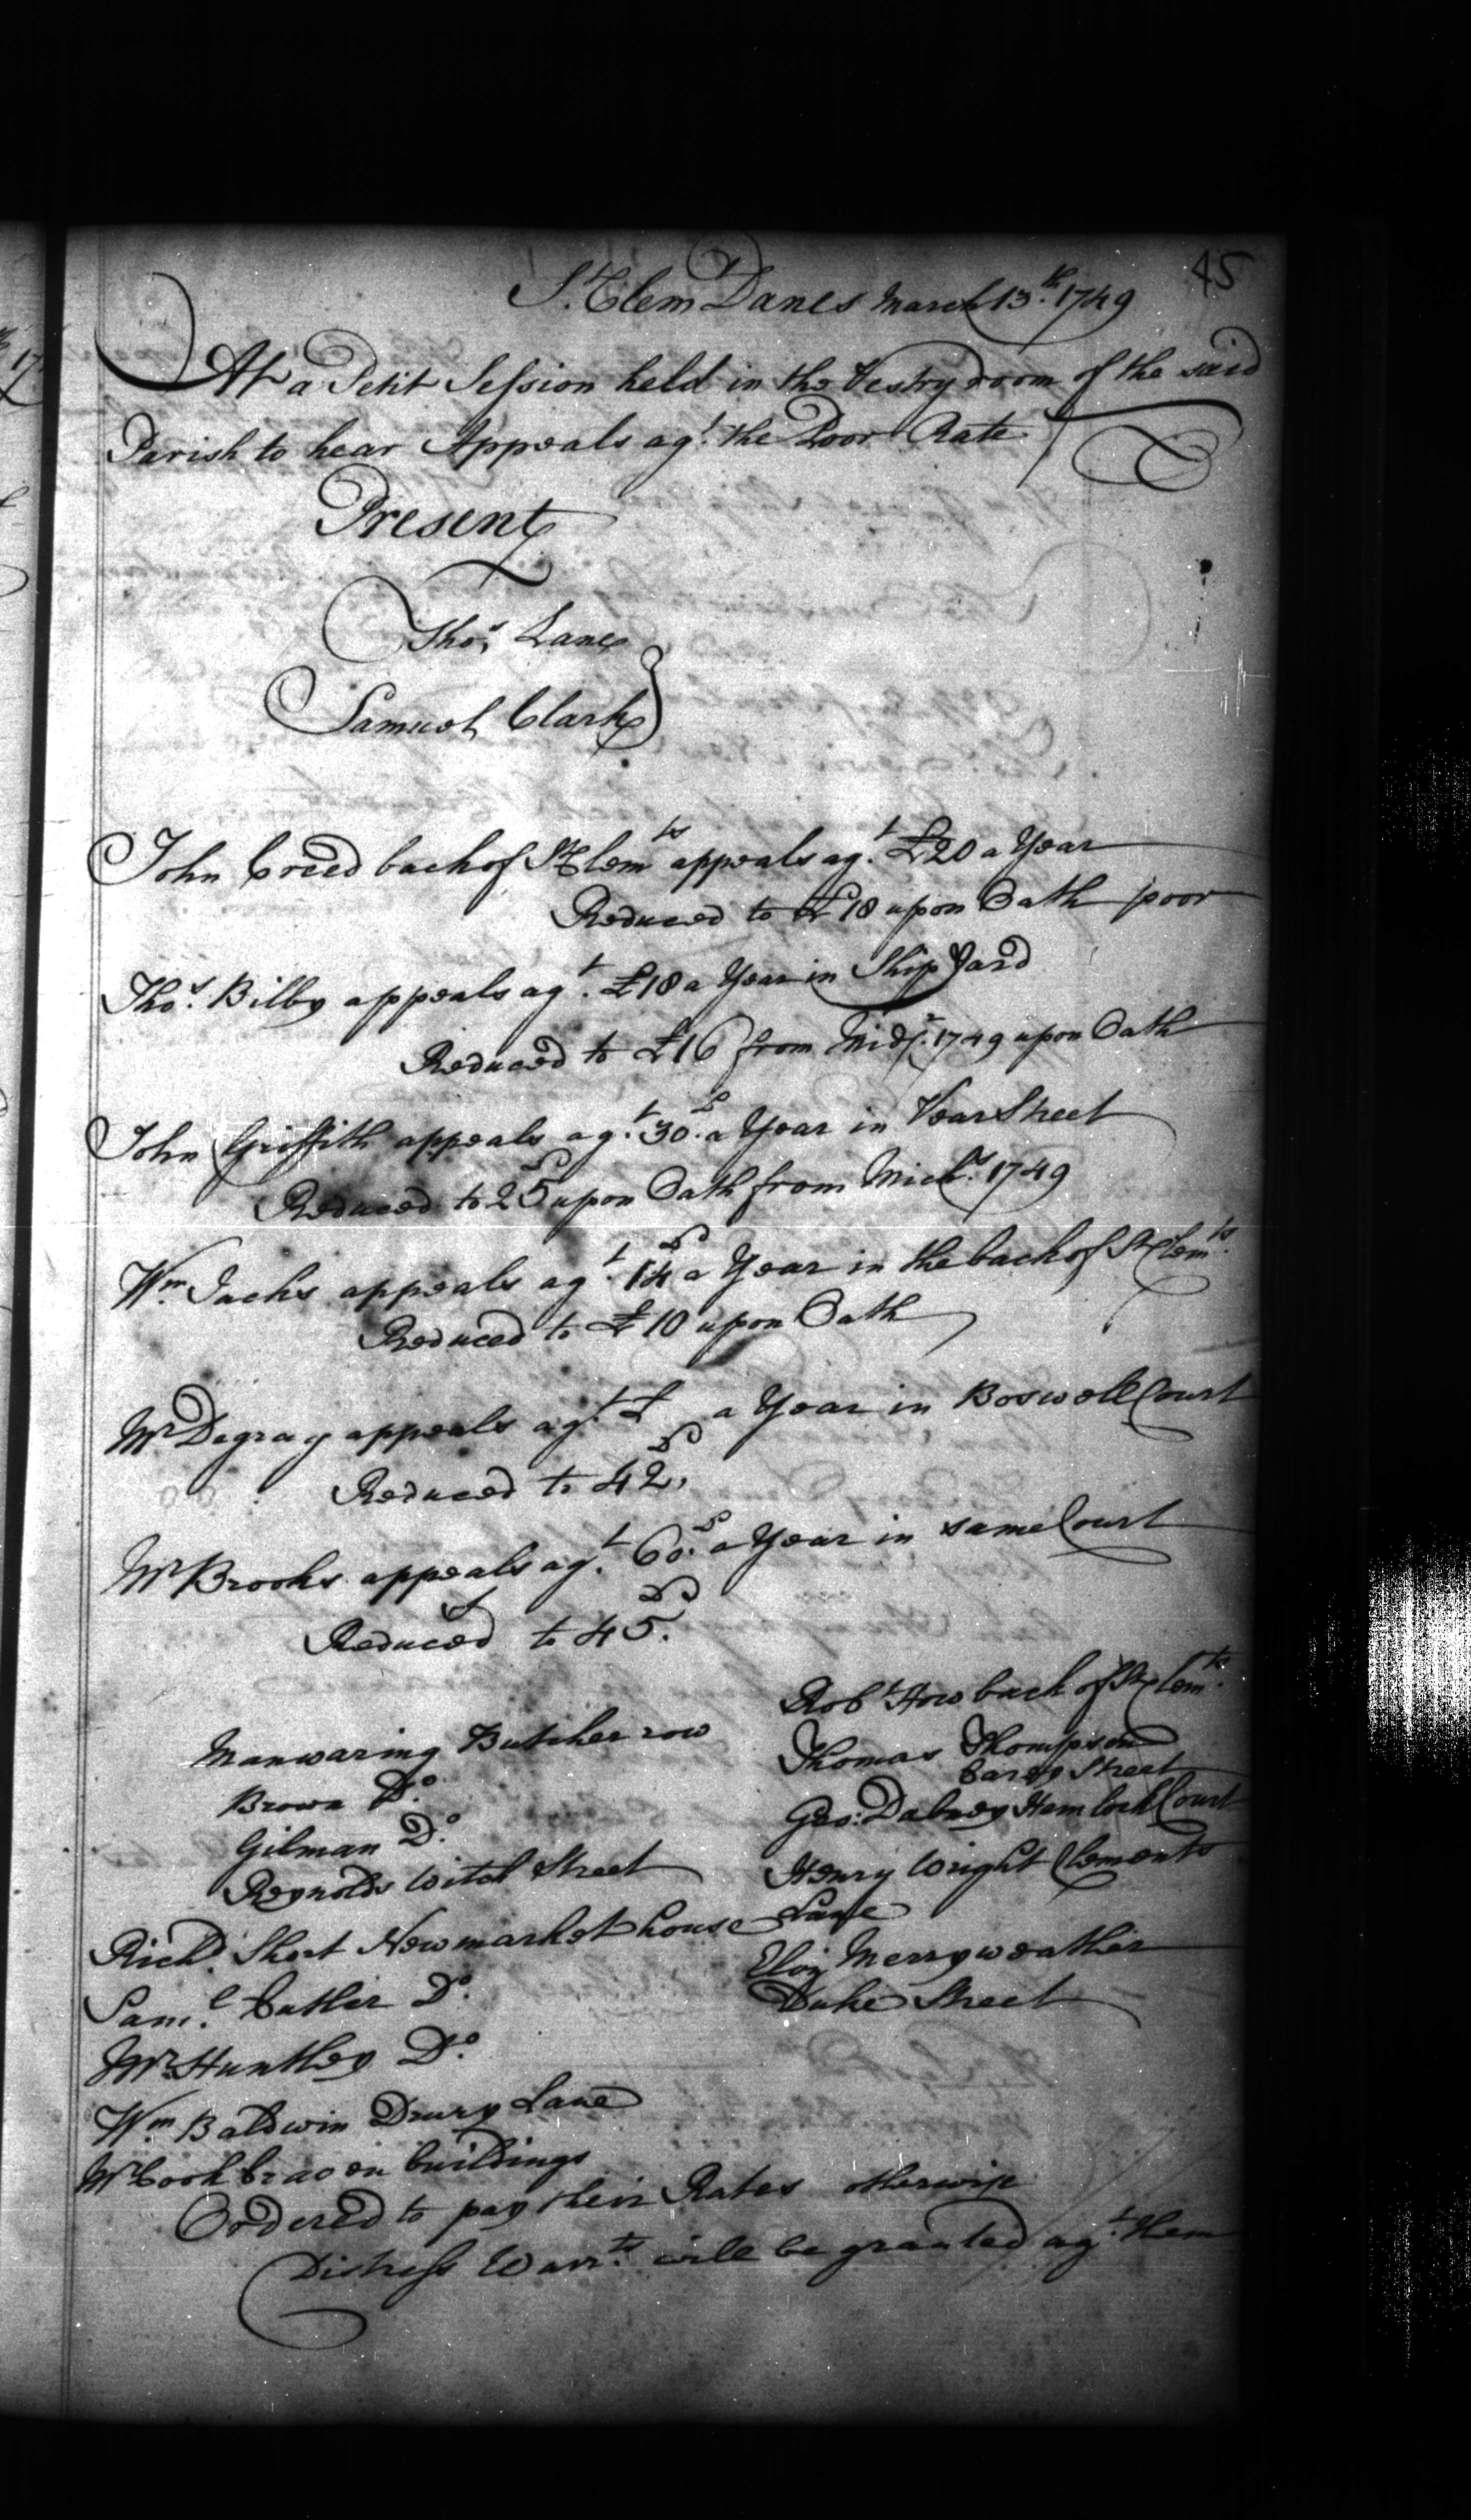 45
St. Clem Danes March 13th. 1749
At a Petit Session held in the Vestry room of the said
Parish to hear Appeals agt. the Poor Rate
Present
Thos. Lane
Samuel Clarke
John Creed back of St Clemts appeals agt. £20 a Year
Reduced to £18 upon Oath poor
Thos. Bilby appeals agt. £18 a Year in Ship Yard
Reduced to £16 from Midsr. 1749 upon Oath
John Griffith appeals agt. 30£. a Year in Vear Street
Reduced to 25£ upon Oath from Michs. 1749
Wm. Jacks appeals agt. 14£ a Year in the back of St Clemts.
Reduced to £10 upon Oath
Mr Degray appeals agt. £ a Year in Boswell Court
Reduced to 42£.
Mr Brooks appeals agt. 60£. a Year in same Court
Reduced to 45£.
Manwaring Butcher row
Brown Do.
Gilman Do.
Reynolds Witch Street
Richd. Short Newmarket house
Saml. Cutler Do.
Mr Huntley Do.
Wm. Baldwin Drury Lane
Mr Cook Craven buildings
Robt How back of St Clemts.
Thomas Thompson
Carey Street
Geo: Dabney Hemlock Court
Henry Wright Clements
Lane
Merryweather
Duke Street
Ordered to pay their Rates otherwise
Distress Warrts. will be granted agt. them